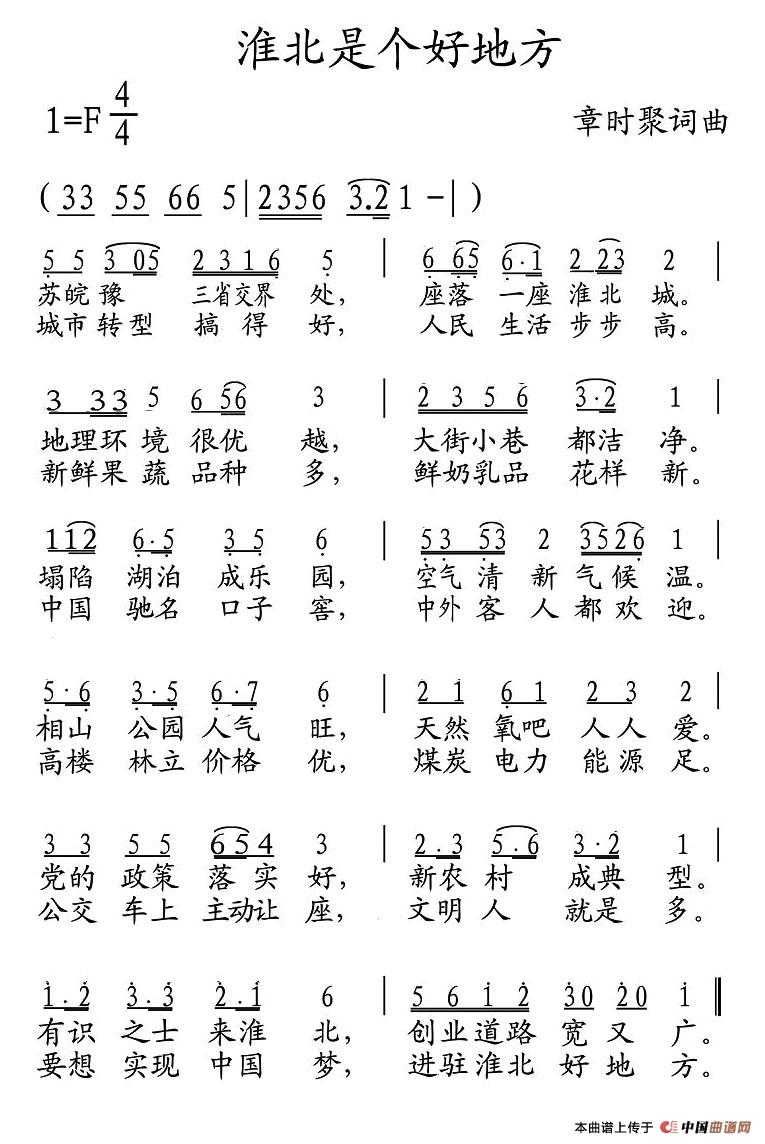 淮北是个好地方
1=F 4/4
章时聚词曲
( 33 55 66 5 | 2356 3.2 1 - | )
5 5 3 05 2 3 1 6 5 | 6 65 6·1 2 23 2 |
苏皖豫 三省交界 处, 座落 一座 淮北 城。
城市转型 搞得 好, 人民 生活 步步 高。
3 33 5 6 56 3 | 2 3 5 6 3·2 1 |
地理环境很优 越, 大街小巷 都洁 净。
新鲜果蔬品种 多, 鲜奶乳品 花样 新。
1 12 6·5 3 5 6 | 5 3 53 2 3526 1 |
塌陷 湖泊 成乐 园, 空气清新气候温。
中国 驰名 口子 窖, 中外客人都欢迎。
5·6 3·5 6·7 6 | 2 1 6 1 2 3 2 |
相山 公园 人气 旺, 天然 氧吧 人人 爱。
高楼 林立 价格 优, 煤炭 电力 能源 足。
3 3 5 5 654 3 | 2.3 5.6 3·2 1 |
党的 政策 落实 好, 新农村 成典 型。
公交 车上 主动让 座, 文明人 就是 多。
1.2 3.3 2.1 6 | 5 6 1 2 30 20 1 ‖
有识 之士 来淮 北, 创业道路 宽又广。
要想 实现 中国 梦, 进驻淮北 好地方。
本曲谱上传于 中国曲谱网